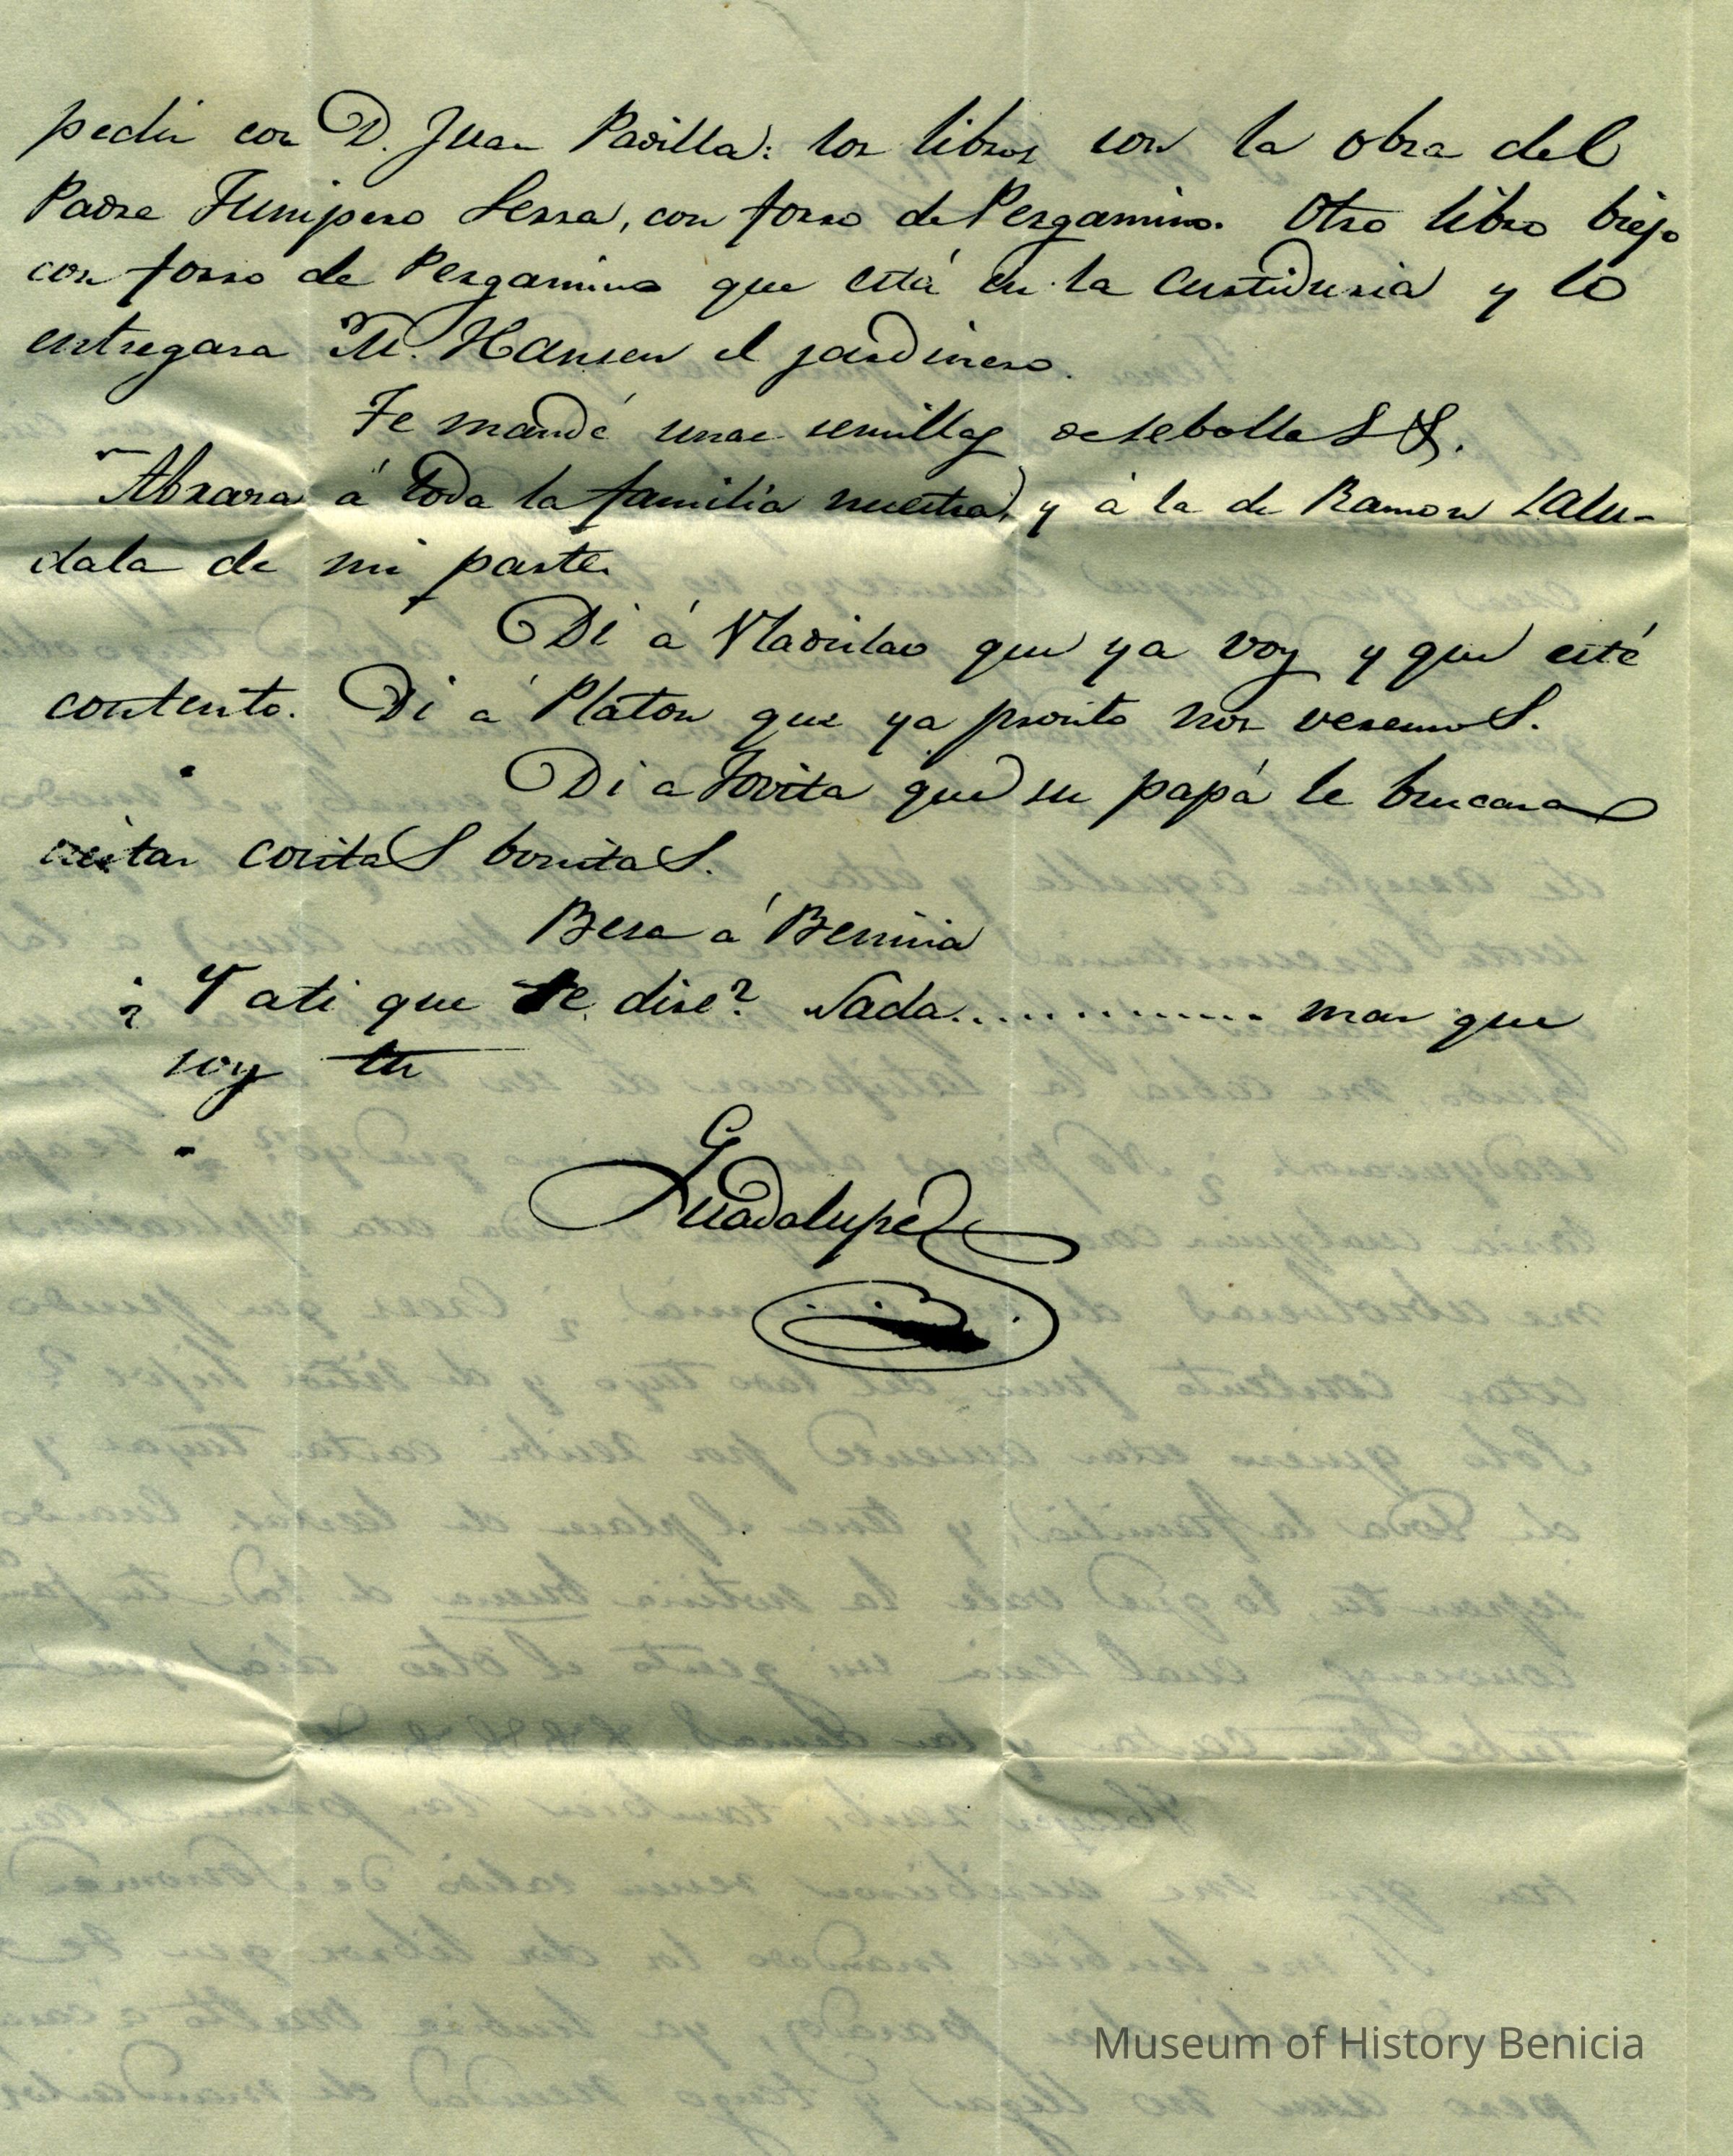 pedir con D. Juan Padilla: los libros son la obra del
Padre Junipero Serra, con forro de Pergamino. Otro libro biejo
con forro de Pergamino que está en la Custiduria y lo
entregara M. Hansen el jardinero.
Te mandé unas semillas de sebollas &.
Abraza á toda la familia nuestra, y á la de Ramon salu-
dala de mi parte.
Di á Uladislao que ya voy y que esté
contento. Di á Platon que ya pronto nos veremos.
Di a Jovita que su papá le buscara
cositas bonitas.
Besa á Benicia
¿Y a ti que te dire? Nada.............. mas que
soy tu
Guadalupe
Museum of History Benicia